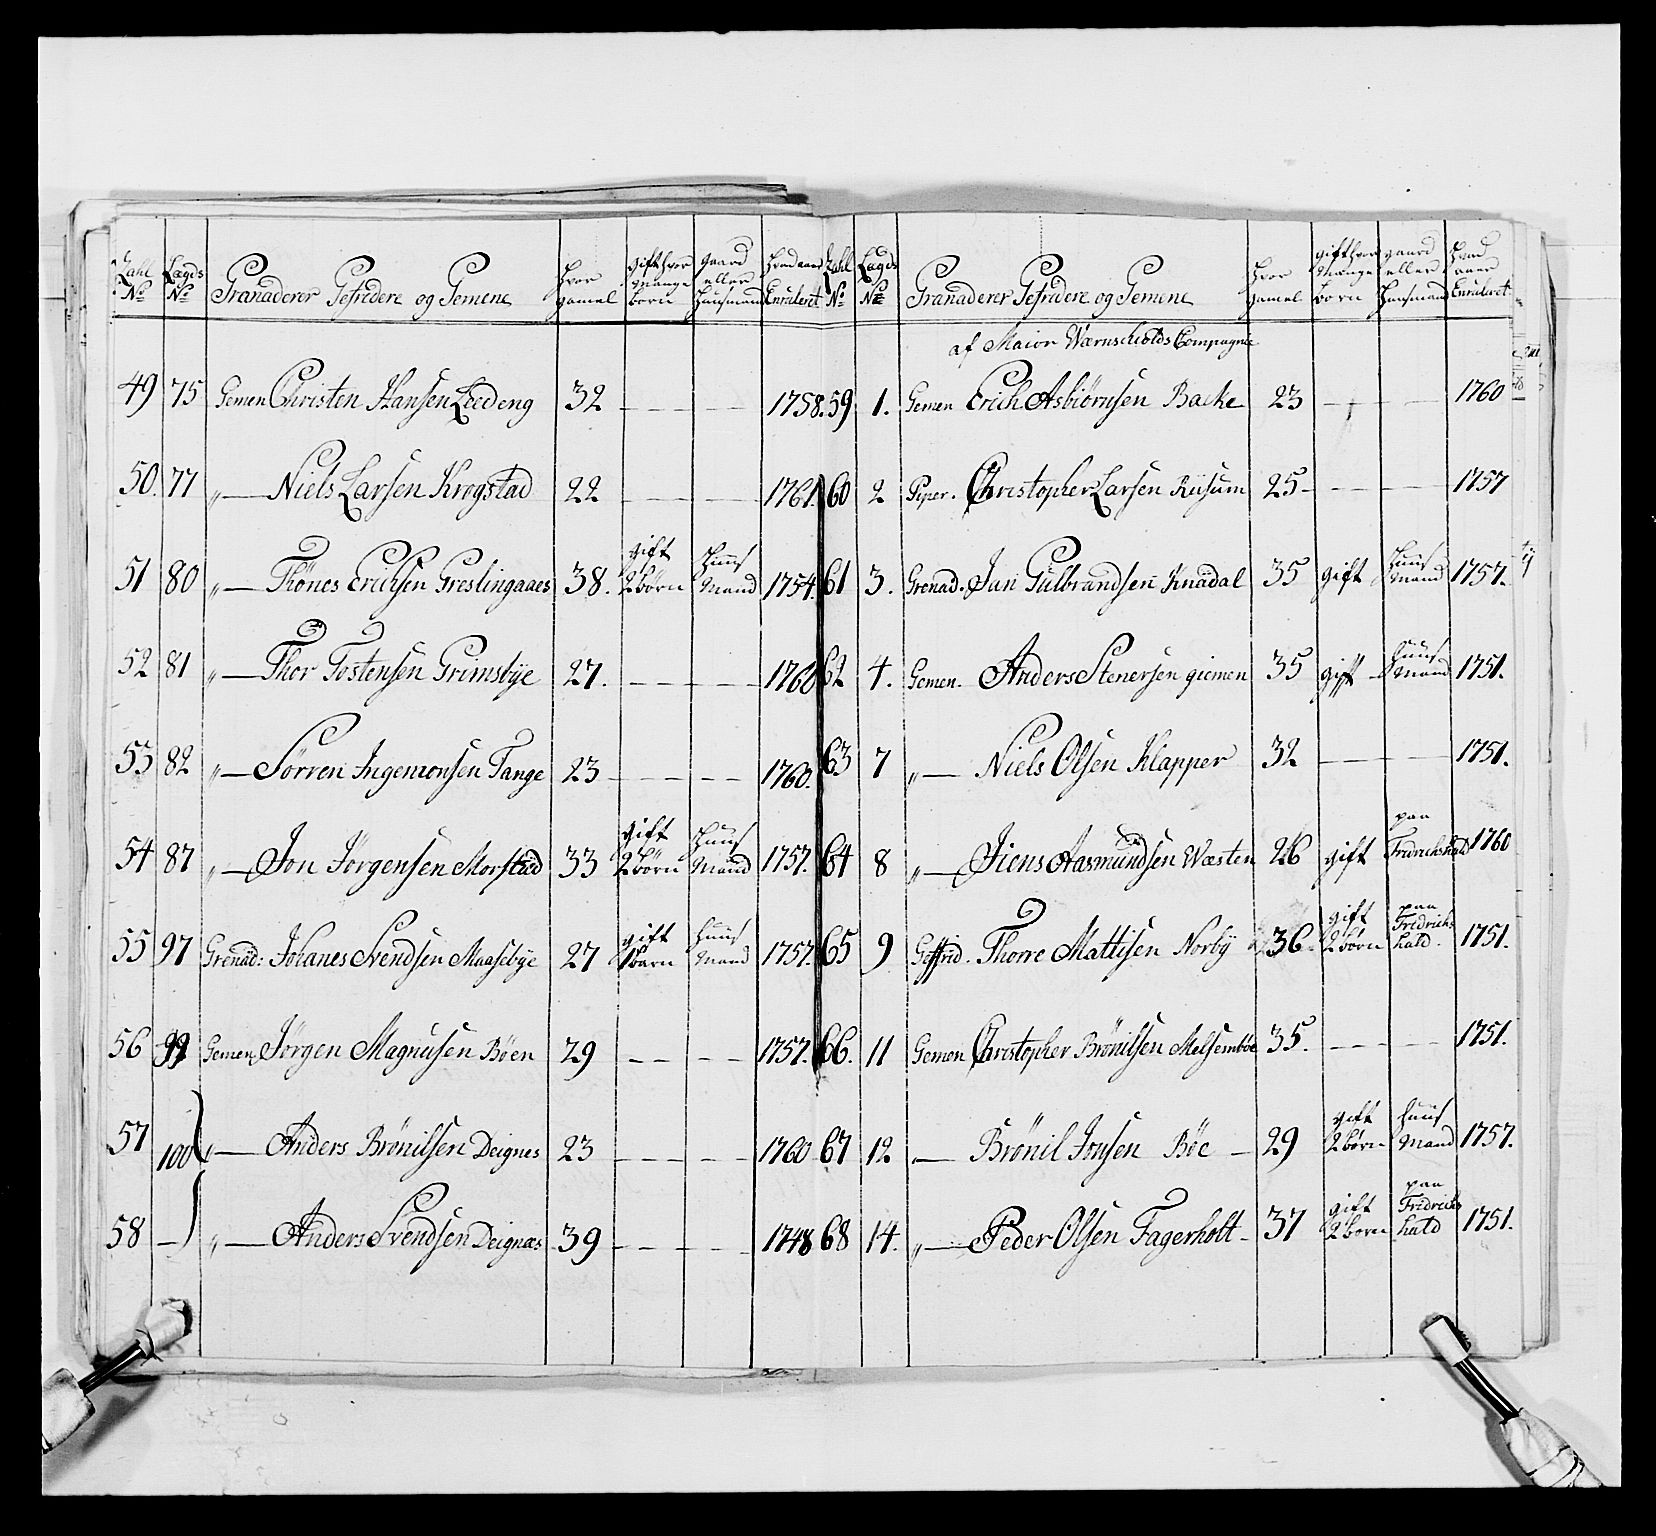 Zahl No | Lægds No | Granaderer Gefridere og Gemene | Hvor gamel | gift hvor mange børn | gaard eller Huusmand | Hvad aar Enruleret
49 | 75 | Gemen Christen Hansen Leedeng | 32 | — — | — | 1758.
50. | 77 | „— Niels Larsen Krogstad | 22 | — — | — | 1761.
51 | 80 | „— Thönes Erichsen Greslingaaes | 38. | gift 2 börn | Huus Mand | 1754.
52 | 81 | „— Thor Tostensen Grimsbÿe | 27. | — — | — | 1760
53 | 82 | „— Sörren Ingemonsen Tange | 23 | — — | — | 1760.
54 | 87 | „— Jon Jörgensen Morstad | 33 | gift 2 börn | Huus Mand | 1757.
55 | 97 | Grenad: Johanes Svendsen Maasebÿe | 27 | gift 1 barn | Huus Mand | 1757.
56 | 99 | Gemen Jörgen Magnusen Böen | 29 | — — | — | 1757.
57 | 100 | „— Anders Brönilsen Deignes | 23 | — — | — | 1760
58 | — | „— Anders Svendsen Deignæs | 39 | — — | — | 1748
Zahl No | Lægds No | Granaderer Gefridere og Gemene | Hvor gamel | gift hvor mange børn | gaard eller Huusmand | Hvad aaer Enruleret
af Maior Wærnscholds Compagnie
59 | 1. | Gemen Erich Asbiörnsen Backe | 23 | — | — | 1760
60 | 2 | Piper. Christopher Larsen Riisum | 25 | — | — | 1757
61 | 3. | Grenad. Jan Gulbrandsen Knadal | 35 | gift | Huus Mand | 1757.
62 | 4. | Gemen. Anders Stenersen giemen | 35 | gift | Huus Mand | 1751.
63 | 7 | „— Niels Olsen Klapper | 32 | — | — | 1751.
64 | 8 | „— Jiens Aasmundsen Wæsten | 26 | gift | paa Fridrichshald | 1760
65 | 9 | Geffrid. Thorre Mattisen Norbÿ | 36 | gift 2 börn | paa Fridrichs hald. | 1751.
66. | 11 | Gemen Christopher Brönilsen Melsemböe | 35. | — | — | 1751.
67 | 12 | — Brönil Jonsen Böe | 29 | gift 2 börn | Huus Mand | 1757.
68 | 14. | „— Peder Olsen Fagerholt | 37 | gift 2 born | paa Fridrichs hald | 1751.